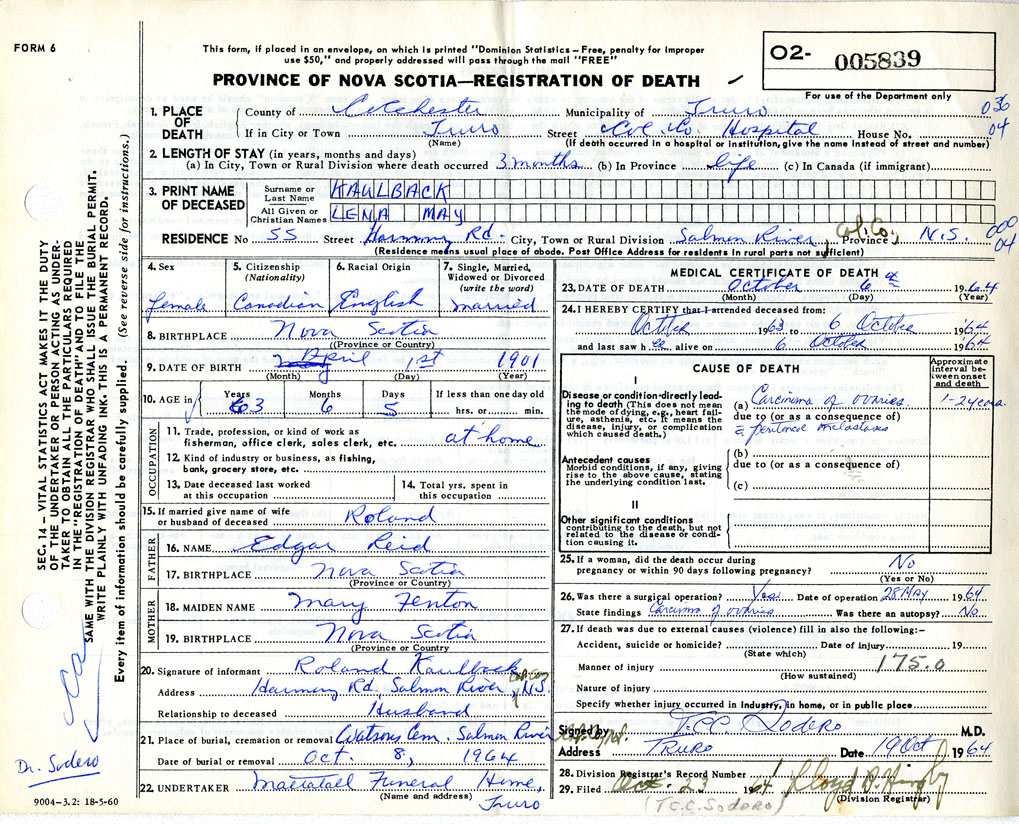 FORM 6
This form, if placed in an envelope, on which is printed "Dominion Statistics – Free, penalty for improper
use $50," and properly addressed will pass through the mail "FREE"
PROVINCE OF NOVA SCOTIA—REGISTRATION OF DEATH
O2- 005839
For use of the Department only
1. PLACE OF DEATH
County of Colchester Municipality of Truro 036
If in City or Town Truro Street Col. Co. Hospital House No. 04
(Name) (If death occurred in a hospital or institution, give the name instead of street and number)
2. LENGTH OF STAY (in years, months and days)
(a) In City, Town or Rural Division where death occurred 3 months (b) In Province life (c) In Canada (if immigrant)
3. PRINT NAME OF DECEASED
Surname or Last Name KAULBACK
All Given or Christian Names LENA MAY
RESIDENCE No 55 Street Harmony Rd. City, Town or Rural Division Salmon River, Col. Co., Province N.S. 000 04
(Residence means usual place of abode. Post Office Address for residents in rural parts not sufficient)
4. Sex
female
5. Citizenship
(Nationality)
Canadian
6. Racial Origin
English
7. Single, Married, Widowed or Divorced
(write the word)
married
8. BIRTHPLACE Nova Scotia
(Province or Country)
9. DATE OF BIRTH April 1st 1901
(Month) (Day) (Year)
10. AGE in Years 63 Months 6 Days 5 If less than one day old
hrs. or min.
OCCUPATION
11. Trade, profession, or kind of work as
fisherman, office clerk, sales clerk, etc. at home
12. Kind of industry or business, as fishing,
bank, grocery store, etc.
13. Date deceased last worked
at this occupation
14. Total yrs. spent in
this occupation
15. If married give name of wife
or husband of deceased Roland
FATHER
16. NAME Edgar Reid
17. BIRTHPLACE Nova Scotia
(Province or Country)
MOTHER
18. MAIDEN NAME Mary Fenton
19. BIRTHPLACE Nova Scotia
(Province or Country)
20. Signature of informant Roland Kaulback
Address Harmony Rd, Salmon River, N.S.
Relationship to deceased Husband
21. Place of burial, cremation or removal Watsons Cem. Salmon River
Date of burial or removal Oct. 8, 1964
22. UNDERTAKER Mattatall Funeral Home,
(Name and address) Truro
MEDICAL CERTIFICATE OF DEATH
23. DATE OF DEATH October 6th 1964
(Month) (Day) (Year)
24. I HEREBY CERTIFY that I attended deceased from:
October 1963 to 6 October 1964
and last saw her alive on 6 October 1964
CAUSE OF DEATH
Approximate interval between onset and death
I
Disease or condition directly leading to death (This does not mean the mode of dying, e.g., heart failure, asthenia, etc. It means the disease, injury, or complication which caused death.)
(a) Carcinoma of ovaries. 1-2 years.
due to (or as a consequence of)
Antecedent causes
Morbid conditions, if any, giving rise to the above cause, stating the underlying condition last.
(b)
due to (or as a consequence of)
(c)
II
Other significant conditions
contributing to the death, but not related to the disease or condition causing it.
25. If a woman, did the death occur during
pregnancy or within 90 days following pregnancy? No
(Yes or No)
26. Was there a surgical operation? Yes Date of operation 28 May 1964
State findings Carcinoma of ovaries Was there an autopsy? No.
27. If death was due to external causes (violence) fill in also the following:–
Accident, suicide or homicide? Date of injury 19
(State which)
Manner of injury 175.0
(How sustained)
Nature of injury
Specify whether injury occurred in industry, in home, or in public place
Signed by T.C.C. Sodero M.D.
Address TRURO Date 19 Oct 1964
28. Division Registrar's Record Number
29. Filed Oct. 23 1964
(Division Registrar)
(T.C.C. Sodero)
SEC. 14 – VITAL STATISTICS ACT MAKES IT THE DUTY
OF THE UNDERTAKER OR PERSON ACTING AS UNDER-
TAKER TO OBTAIN ALL THE PARTICULARS REQUIRED
IN THE "REGISTRATION OF DEATH" AND TO FILE THE
SAME WITH THE DIVISION REGISTRAR WHO SHALL ISSUE THE BURIAL PERMIT.
WRITE PLAINLY WITH UNFADING INK. THIS IS A PERMANENT RECORD.
Every item of information should be carefully supplied. (See reverse side for instructions.)
Dr. Sodero
9004–3.2: 18-5-60